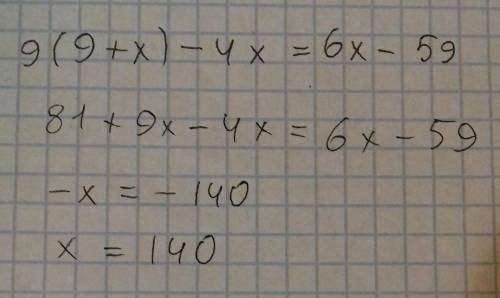 9(9+x)-4x = 6x - 59
81+9x-4x = 6x-59
-x = -140
x = 140